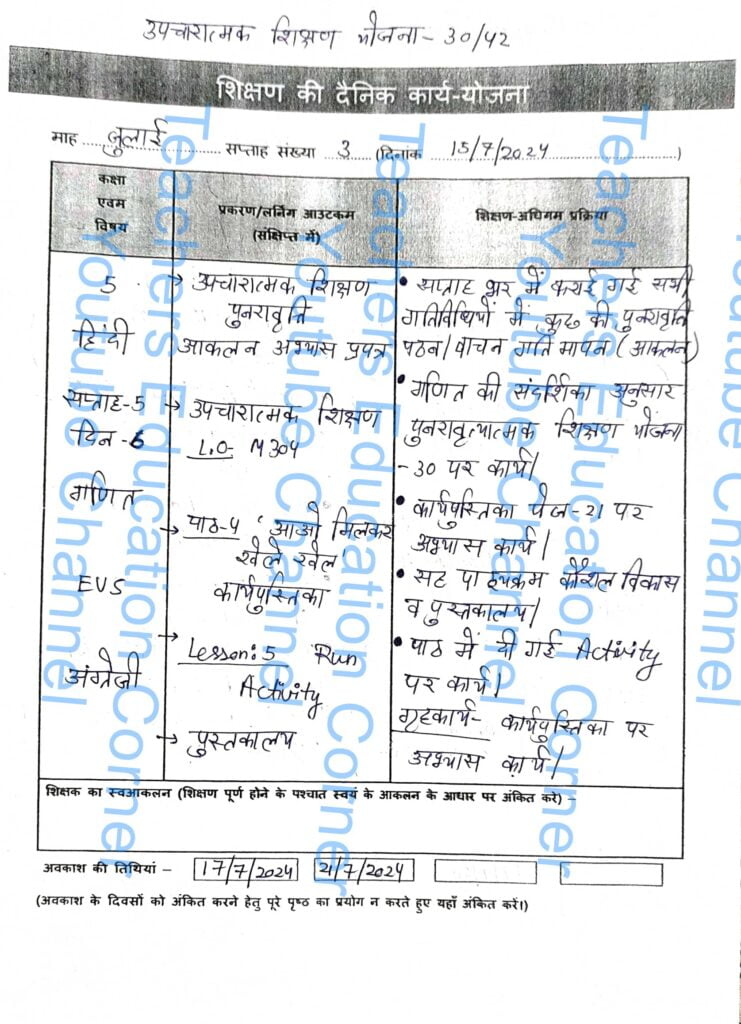 उपचारात्मक शिक्षण योजना - 30/42
शिक्षण की दैनिक कार्य-योजना
माह जुलाई सप्ताह संख्या 3 (दिनांक 15/7/2024)
कक्षा एवम विषय
प्रकरण/लर्निंग आउटकम (संक्षिप्त में)
शिक्षण-अधिगम प्रक्रिया
5
हिंदी
सप्ताह-5
दिन-6
गणित
EVS
अंग्रेजी
→ उपचारात्मक शिक्षण
पुनरावृत्ति
आकलन अभ्यास प्रपत्र
→ उपचारात्मक शिक्षण
L.O- M304
→ पाठ-4 'आओ मिलकर
खेले खेल'
कार्यपुस्तिका
→ Lesson: 5 Run
Activity
→ पुस्तकालय
• सप्ताह भर में कराई गई सभी
गतिविधियों में कुछ की पुनरावृत्ति
पठन/वाचन गति मापन (आकलन)
• गणित की संदर्शिका अनुसार
पुनरावृत्यात्मक शिक्षण योजना
-30 पर कार्य।
• कार्यपुस्तिका पेज-21 पर
अभ्यास कार्य।
• सह पाठ्यक्रम कौशल विकास
व पुस्तकालय।
• पाठ में दी गई Activity
पर कार्य।
गृहकार्य- कार्यपुस्तिका पर
अभ्यास कार्य।
शिक्षक का स्वआकलन (शिक्षण पूर्ण होने के पश्चात स्वयं के आकलन के आधार पर अंकित करें) –
अवकाश की तिथियां – 17/7/2024 21/7/2024
(अवकाश के दिवसों को अंकित करने हेतु पूरे पृष्ठ का प्रयोग न करते हुए यहाँ अंकित करें।)
Teachers Education Corner
Youtube Channel
Teachers Education Corner
Youtube Channel
Teachers Education Corner
Youtube Channel
Youtube